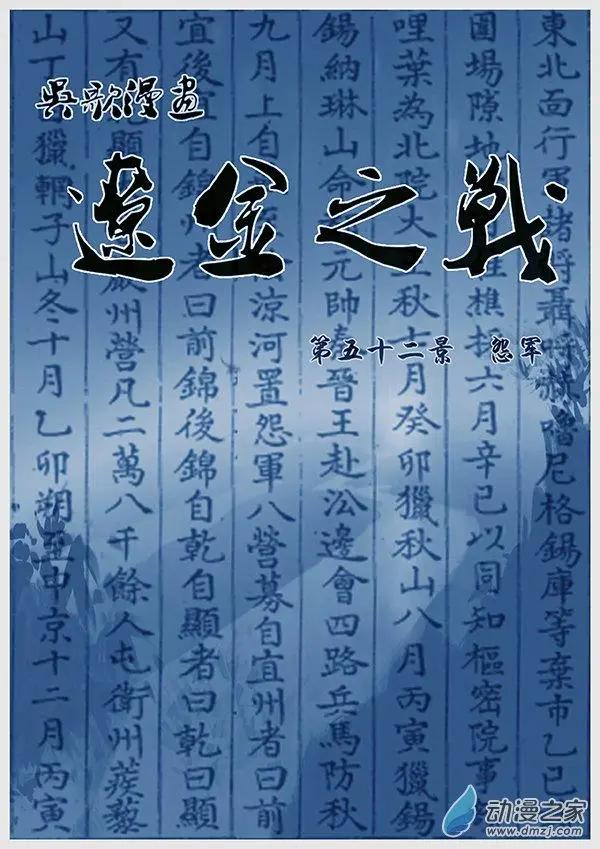 吳歌漫畫
遼金之戰
第五十二景 怨軍
東北面行軍諸將聶呼赫嚕尼格錫庫等棄市乙巳
圍場隙地樵採六月辛巳以同知樞密院事
哩葉為北院大王秋七月癸卯獵秋山八月丙寅獵錫
錫納琳山命元帥秦晉王赴沿邊會四路兵馬防秋
九月上自涼河置怨軍八營募自宜州者曰前
宜後宜自錦州者曰前錦後錦自乾自顯者曰乾曰顯
又有顯巖州營凡二萬八千餘人屯衛州蒺藜
山丁獵輞子山冬十月乙卯朔至中京十二月丙寅
动漫之家
www.dmzj.com